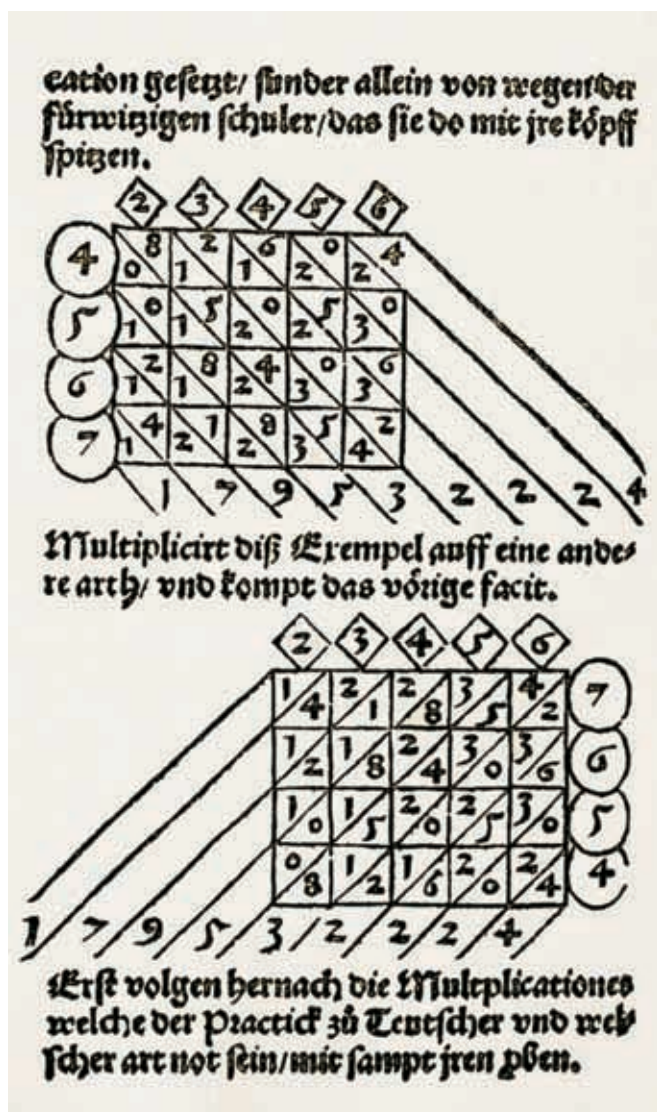 cation geſetzt/ ſunder allein von wegen der
fürwitzigen ſchuler/das ſie do mit jre köpff
ſpitzen.
2 3 4 5 6
4 8 2 6 0 4
0 1 1 2 2
5 0 5 0 5 0
1 1 2 2 3
6 2 8 4 0 6
1 1 2 3 3
7 4 1 8 5 2
1 2 2 3 4
1 7 9 5 3 2 2 2 4
Multiplicirt diß Exempel auff eine ande⸗
re arth/ vnd kompt das vörige facit.
2 3 4 5 6
1 2 2 3 4
4 1 8 5 2 7
1 1 2 3 3
2 8 4 0 6 6
1 1 2 2 3
0 5 0 5 0 5
0 1 1 2 2
8 2 6 0 4 4
1 7 9 5 3 2 2 2 4
Erſt volgen hernach die Multplicationes
welche der Practick zů Teutſcher vnd wel⸗
ſcher art not ſein/mit ſampt jren pben.